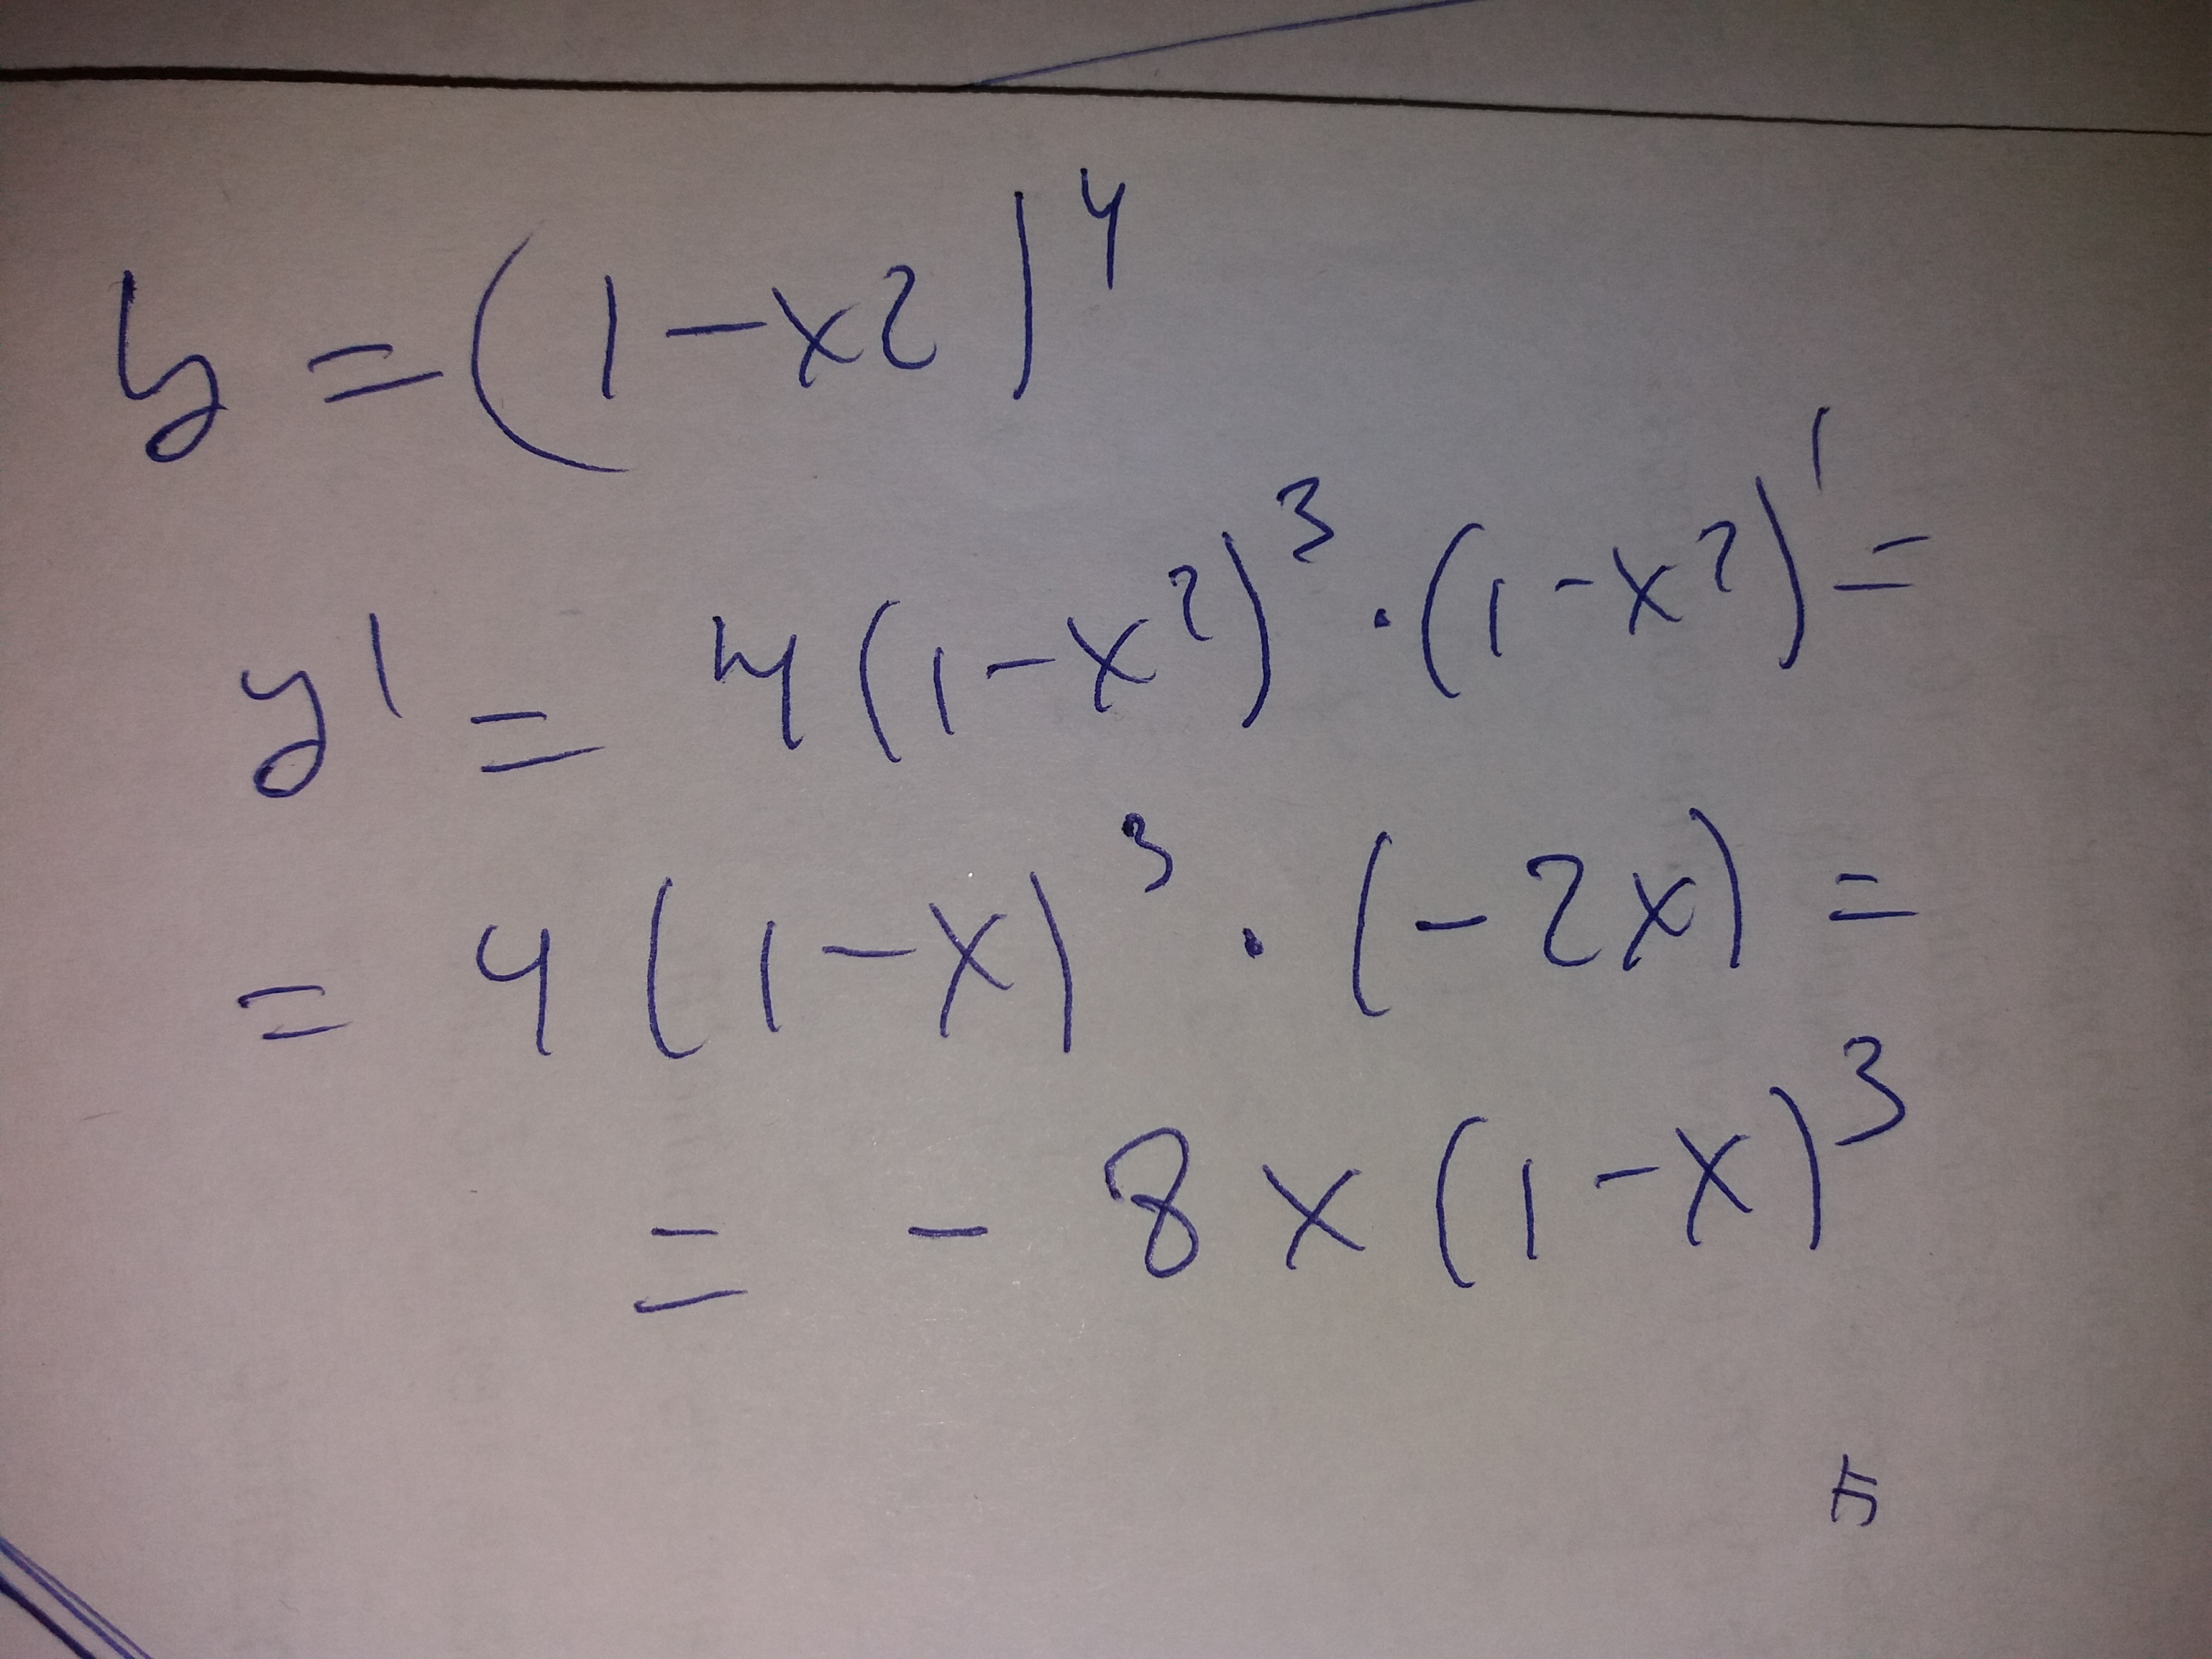 y = (1-x2)⁴
y' = 4(1-x²)³ · (1-x²)' =
= 4(1-x)³ · (-2x) =
= - 8x(1-x)³